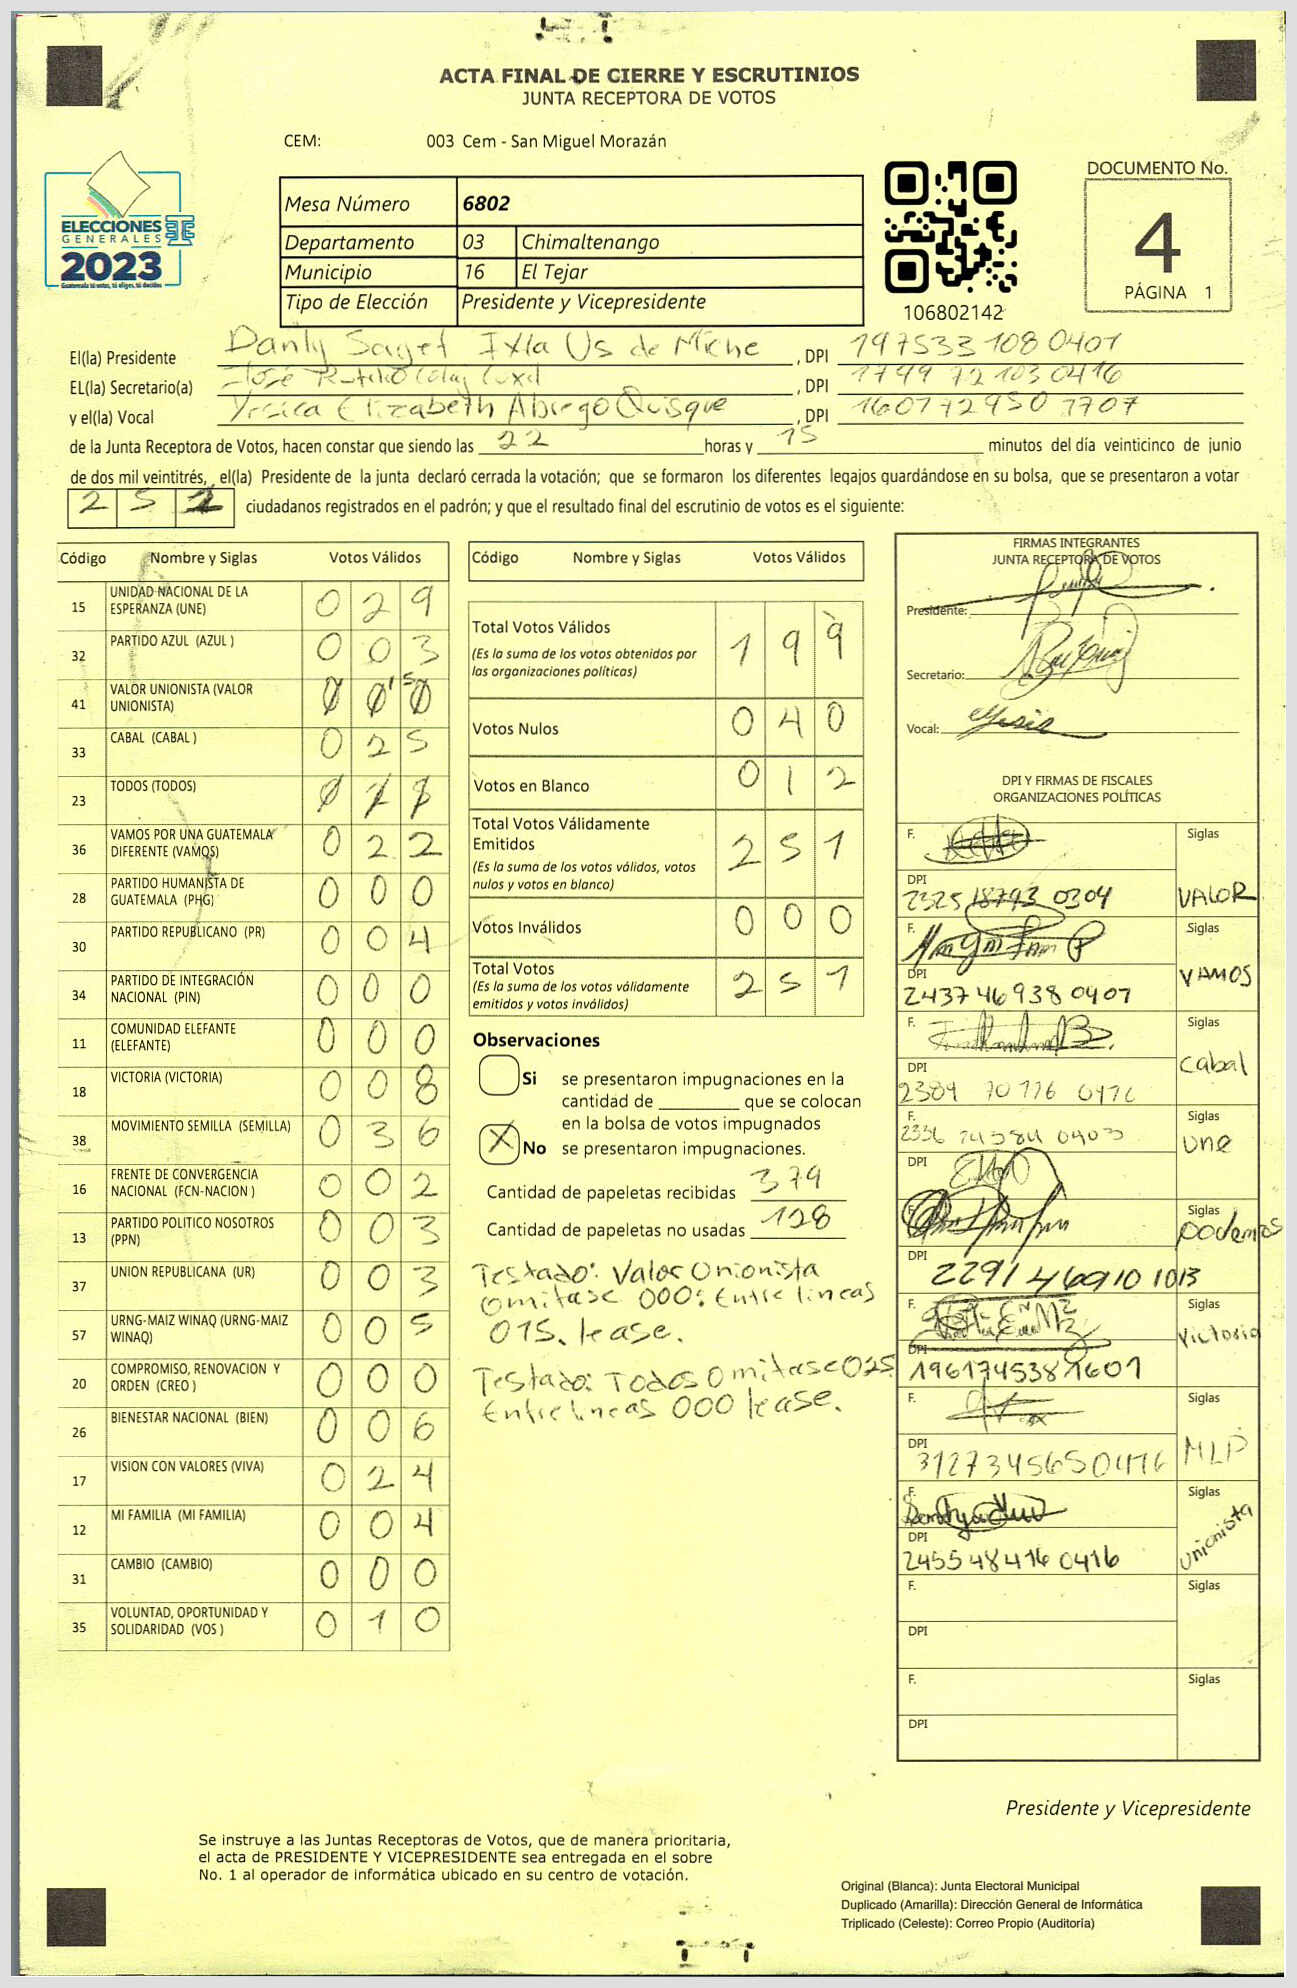 ACTA FINAL DE CIERRE Y ESCRUTINIOS
JUNTA RECEPTORA DE VOTOS
CEM: 003 Cem - San Miguel Morazán
ELECCIONES
GENERALES
2023
Guatemala tú votas, tú eliges, tú decides
Mesa Número 6802
Departamento 03 Chimaltenango
Municipio 16 El Tejar
Tipo de Elección Presidente y Vicepresidente
106802142
DOCUMENTO No.
4
PÁGINA 1
El(la) Presidente Danly Saget Ixla Us de Miche , DPI 197533108 0401
EL(la) Secretario(a) José , DPI 1799 72103 0416
y el(la) Vocal Yesica Elizabeth Abrego Quisque , DPI 160172950 1707
de la Junta Receptora de Votos, hacen constar que siendo las 22 horas y 15 minutos del día veinticinco de junio
de dos mil veintitrés, el(la) Presidente de la junta declaró cerrada la votación; que se formaron los diferentes legajos guardándose en su bolsa, que se presentaron a votar
252 ciudadanos registrados en el padrón; y que el resultado final del escrutinio de votos es el siguiente:
Código Nombre y Siglas Votos Válidos
15 UNIDAD NACIONAL DE LA ESPERANZA (UNE) 0 2 9
32 PARTIDO AZUL (AZUL ) 0 0 3
41 VALOR UNIONISTA (VALOR UNIONISTA) 0 0 0 15
33 CABAL (CABAL ) 0 2 5
23 TODOS (TODOS)
36 VAMOS POR UNA GUATEMALA DIFERENTE (VAMOS) 0 2 2
28 PARTIDO HUMANISTA DE GUATEMALA (PHG) 0 0 0
30 PARTIDO REPUBLICANO (PR) 0 0 4
34 PARTIDO DE INTEGRACIÓN NACIONAL (PIN) 0 0 0
11 COMUNIDAD ELEFANTE (ELEFANTE) 0 0 0
18 VICTORIA (VICTORIA) 0 0 8
38 MOVIMIENTO SEMILLA (SEMILLA) 0 3 6
16 FRENTE DE CONVERGENCIA NACIONAL (FCN-NACION ) 0 0 2
13 PARTIDO POLITICO NOSOTROS (PPN) 0 0 3
37 UNION REPUBLICANA (UR) 0 0 3
57 URNG-MAIZ WINAQ (URNG-MAIZ WINAQ) 0 0 5
20 COMPROMISO, RENOVACION Y ORDEN (CREO ) 0 0 0
26 BIENESTAR NACIONAL (BIEN) 0 0 6
17 VISION CON VALORES (VIVA) 0 2 4
12 MI FAMILIA (MI FAMILIA) 0 0 4
31 CAMBIO (CAMBIO) 0 0 0
35 VOLUNTAD, OPORTUNIDAD Y SOLIDARIDAD (VOS ) 0 1 0
Código Nombre y Siglas Votos Válidos
Total Votos Válidos 1 9 9
(Es la suma de los votos obtenidos por
las organizaciones políticas)
Votos Nulos 0 4 0
Votos en Blanco 0 1 2
Total Votos Válidamente
Emitidos 2 5 1
(Es la suma de los votos válidos, votos
nulos y votos en blanco)
Votos Inválidos 0 0 0
Total Votos 2 5 1
(Es la suma de los votos válidamente
emitidos y votos inválidos)
Observaciones
Si se presentaron impugnaciones en la
cantidad de ________ que se colocan
en la bolsa de votos impugnados
X No se presentaron impugnaciones.
Cantidad de papeletas recibidas 379
Cantidad de papeletas no usadas 128
Testado: Valor Unionista
Omitase 000: Entre lineas
015. lease.
Testado: Todos Omitase 025
Entre lineas 000 lease.
FIRMAS INTEGRANTES
JUNTA RECEPTORA DE VOTOS
Presidente:
Secretario:
Vocal:
DPI Y FIRMAS DE FISCALES
ORGANIZACIONES POLÍTICAS
F. Siglas
DPI 2325 18793 0304 VALOR
F. Siglas
DPI 2437 46938 0407 VAMOS
F. Siglas
DPI 2389 70776 0476 Cabal
F. Siglas
DPI une
F. Siglas
DPI 2291 46910 1013 Podemos
F. Siglas
DPI 196174538 1601 Victoria
F. Siglas
DPI 3127345650416 MLP
F. Siglas
DPI 2455 48416 0416 Unionista
F. Siglas
DPI
F. Siglas
DPI
Presidente y Vicepresidente
Se instruye a las Juntas Receptoras de Votos, que de manera prioritaria,
el acta de PRESIDENTE Y VICEPRESIDENTE sea entregada en el sobre
No. 1 al operador de informática ubicado en su centro de votación.
Original (Blanca): Junta Electoral Municipal
Duplicado (Amarilla): Dirección General de Informática
Triplicado (Celeste): Correo Propio (Auditoría)